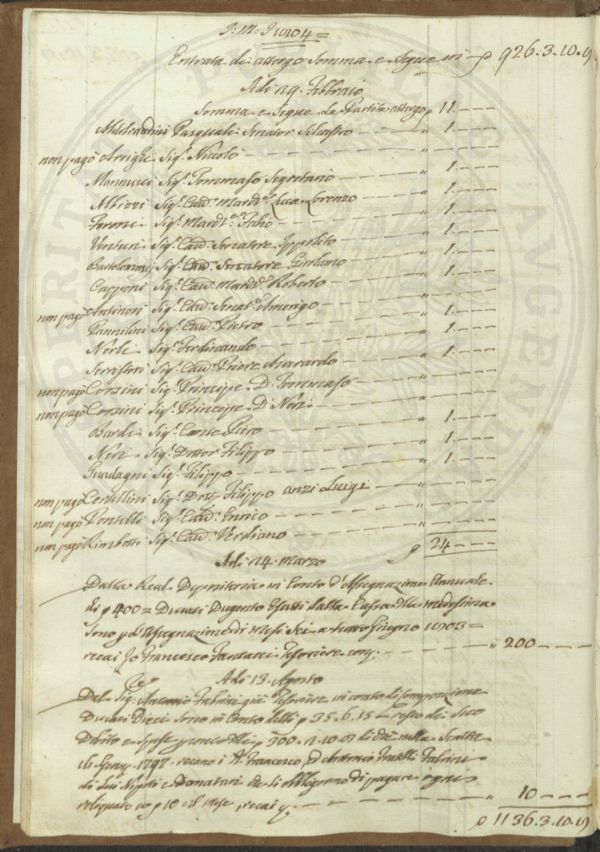 Entrata di attergo Somma e Segue in p 926.3.10.19
Adi 19. Febbraio
Somma e Segue La Partita attergo p 11. - - -
Aldobrandini Pasquali Senator Silvestro " 1. - - -
non pagò Arrighi Sig.r Niccolò
Mannucci Sig.r Tommaso Segretario " 1. - - -
Albizzi Sig.r Cav. March.e Luca Lorenzo " 1. - - -
Feroni Sig.r March.e Fabio " 1. - - -
Venturi Sig.r Cav. Senatore Ippolito " 1. - - -
Bartolommei Sig.r Cav. Senatore Girolamo " 1. - - -
Capponi Sig.r Cav. March.e Roberto " 1. - - -
non pagò Antinori Sig.r Cav. Senat.e Amerigo
Pannilini Sig.r Cav. Pietro " 1. - - -
Nerli Sig.r Ferdinando " 1. - - -
Serristori Sig.r Cav. Priore Averardo " 1. - - -
non pagò Corsini Sig.r Principe D. Tommaso
non pagò Corsini Sig.r Principe D. Neri
Bardi Sig.r Conte Piero " 1. - - -
Neri Sig.r Dottor Filippo " 1. - - -
Guadagni Sig.r Filippo " 1. - - -
non pagò Sig.r Dott. Filippo anzi Luigi
non pagò Pontelli Sig.r Cav. Enrico
non pagò Rimbotti Sig.r Cav. Verdiano
p 24 - - -
Adi 14. Marzo
Dalla Real Depositeria in Conto d'Assegnazione Annuale
di p 400 = Ducati Dugento Esatti dalla Cassa della medesima
sono p d'Assegnazione di Mesi Sei a tutto Giugno 1803 =
recai Io Francesco Tesoriere " 200 - - -
Adi 13. Agosto
Del Sig.r Antonio Fabrini già Tesoriere in conto di
Ducati Dieci sono in Conto delli p 35.6.15 - Resto del Suo
Debito e Spese p 300.1.10.01 di
1797 recano i Francesco, ed Antonio Fratelli Fabrini
di Lui Nipoti e Donatari che si obbligarono di pagare ogni
p 10 il Mese, recai " 10 - - -
p 1136.3.10.19